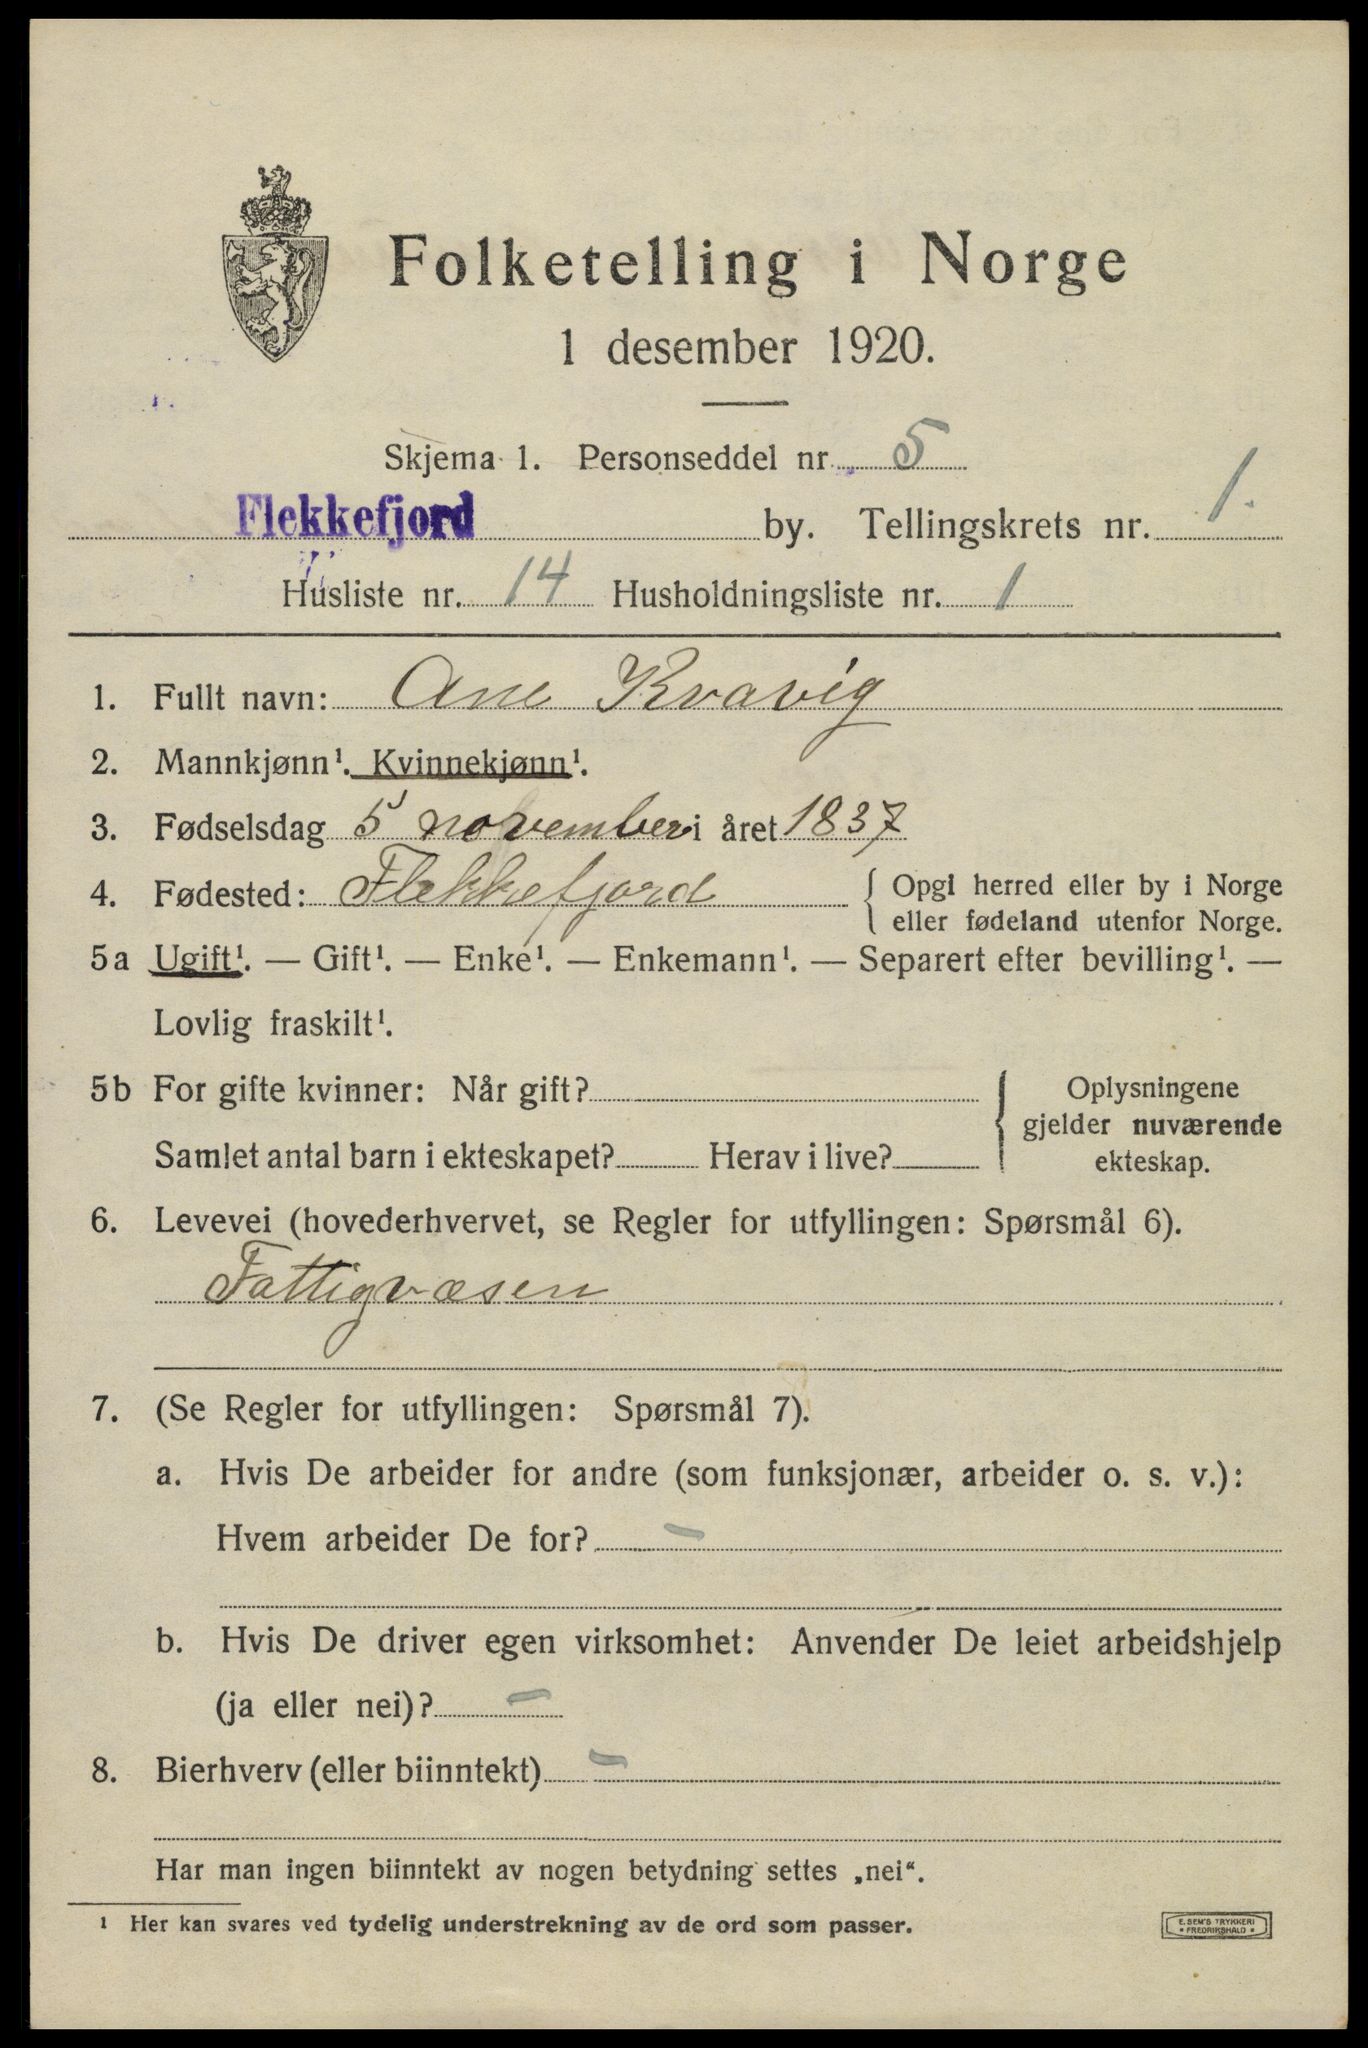 Folketelling i Norge
1 desember 1920.
Skjema 1. Personseddel nr. 5
Flekkefjord by. Tellingskrets nr. 1.
Husliste nr. 14 Husholdningsliste nr. 1
1. Fullt navn: Ane Kvavig
2. Mannkjønn¹. Kvinnekjønn¹.
3. Fødselsdag 5 november i året 1837
4. Fødested: Flekkefjord { Opgi herred eller by i Norge
eller fødeland utenfor Norge.
5a Ugift¹. — Gift¹. — Enke¹. — Enkemann¹. — Separert efter bevilling¹. —
Lovlig fraskilt¹.
5b For gifte kvinner: Når gift? { Oplysningene
gjelder nuværende
Samlet antal barn i ekteskapet? Herav i live? ekteskap.
6. Levevei (hovederhvervet, se Regler for utfyllingen: Spørsmål 6).
Fattigvæsen
7. (Se Regler for utfyllingen: Spørsmål 7).
a. Hvis De arbeider for andre (som funksjonær, arbeider o. s. v.):
Hvem arbeider De for? –
b. Hvis De driver egen virksomhet: Anvender De leiet arbeidshjelp
(ja eller nei)? –
8. Bierhverv (eller biinntekt) –
Har man ingen biinntekt av nogen betydning settes „nei“.
¹ Her kan svares ved tydelig understrekning av de ord som passer.
E. SEM'S TRYKKERI
• FREDRIKSHALD •